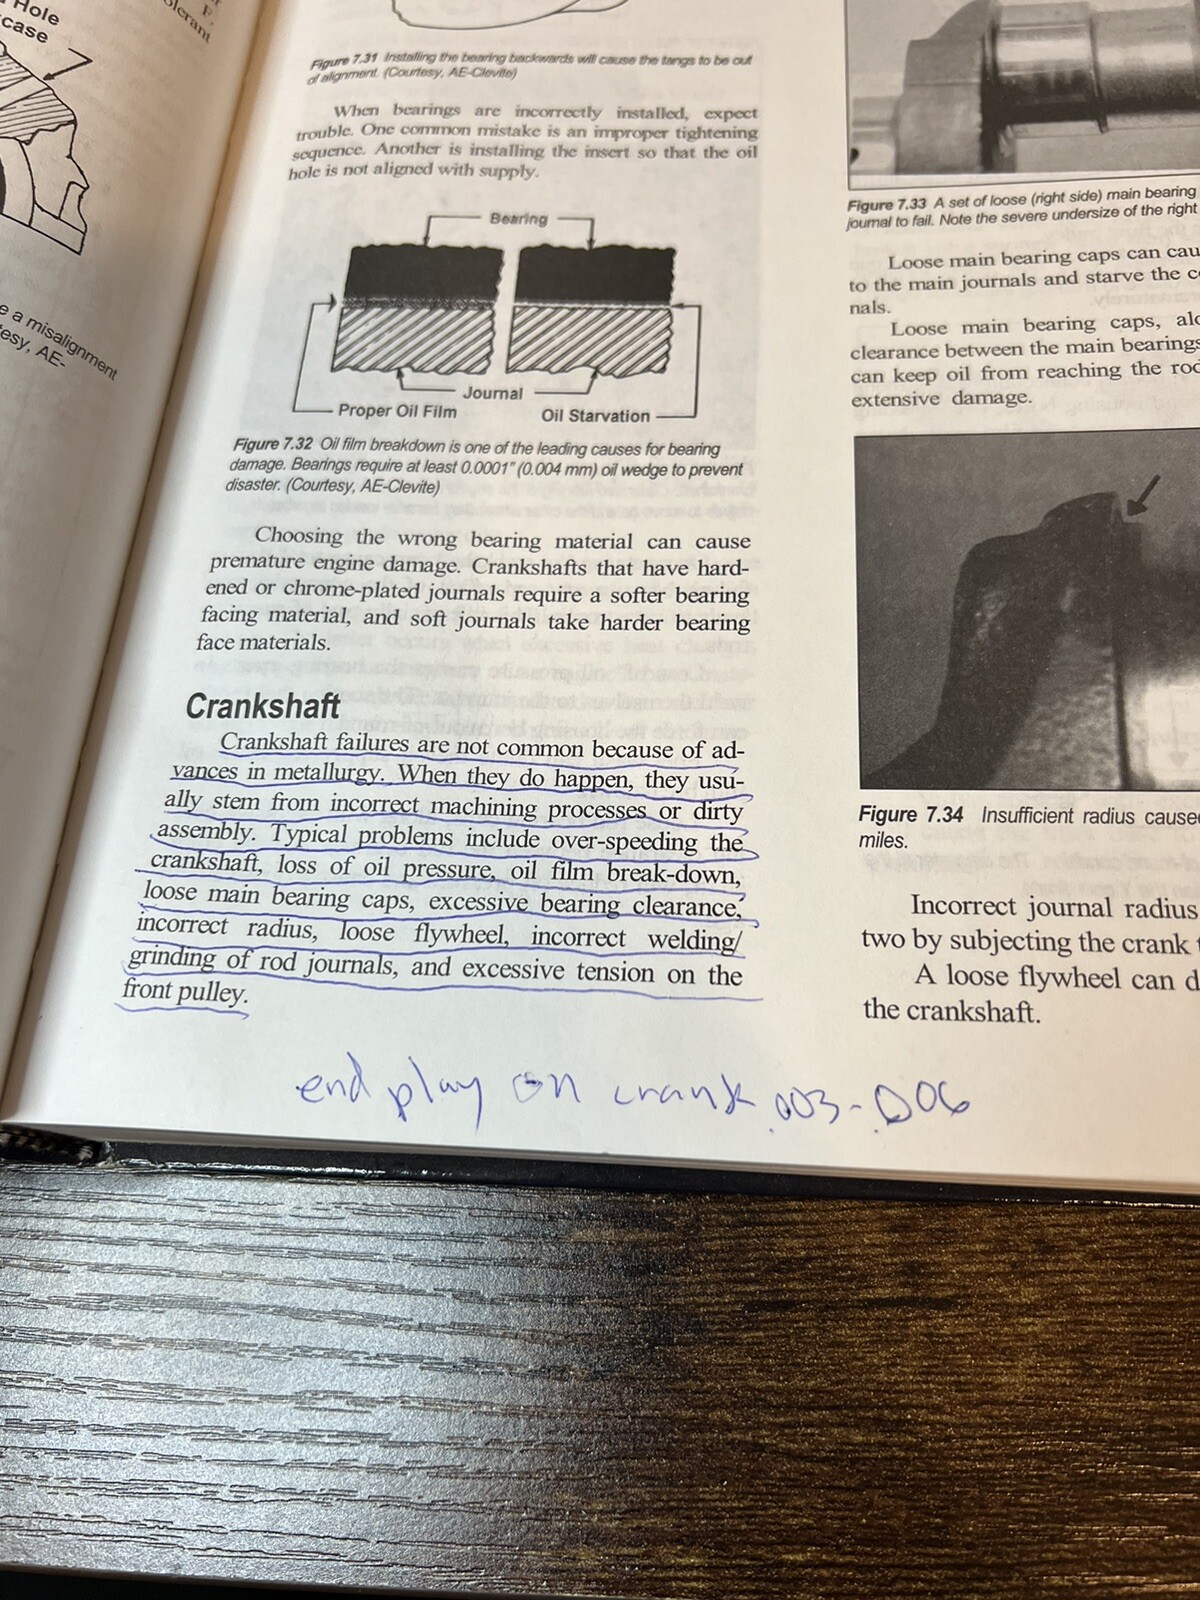 Hole
case
F.
olerant
e a misalignment
tesy, AE-
Figure 7.31 Installing the bearing backwards will cause the tangs to be out
of alignment. (Courtesy, AE-Clevite)
When bearings are incorrectly installed, expect
trouble. One common mistake is an improper tightening
sequence. Another is installing the insert so that the oil
hole is not aligned with supply.
Bearing
Journal
Proper Oil Film
Oil Starvation
Figure 7.32 Oil film breakdown is one of the leading causes for bearing
damage. Bearings require at least 0.0001" (0.004 mm) oil wedge to prevent
disaster. (Courtesy, AE-Clevite)
Choosing the wrong bearing material can cause
premature engine damage. Crankshafts that have hard-
ened or chrome-plated journals require a softer bearing
facing material, and soft journals take harder bearing
face materials.
Crankshaft
Crankshaft failures are not common because of ad-
vances in metallurgy. When they do happen, they usu-
ally stem from incorrect machining processes or dirty
assembly. Typical problems include over-speeding the
crankshaft, loss of oil pressure, oil film break-down,
loose main bearing caps, excessive bearing clearance,
incorrect radius, loose flywheel, incorrect welding/
grinding of rod journals, and excessive tension on the
front pulley.
end play on crank .003-.006
Figure 7.33 A set of loose (right side) main bearing
journal to fail. Note the severe undersize of the right
Loose main bearing caps can cau
to the main journals and starve the c
nals.
Loose main bearing caps, alo
clearance between the main bearings
can keep oil from reaching the rod
extensive damage.
Figure 7.34 Insufficient radius cause
miles.
Incorrect journal radius
two by subjecting the crank t
A loose flywheel can d
the crankshaft.